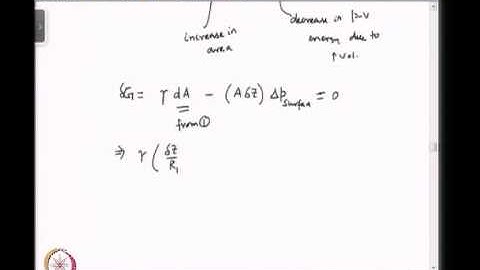 increase in
area
decrease in P-V
energy due to
↑ vol.
δG = γ dA − (A δZ) Δp surface = 0
from ①
⇒ γ ( δZ/R₁